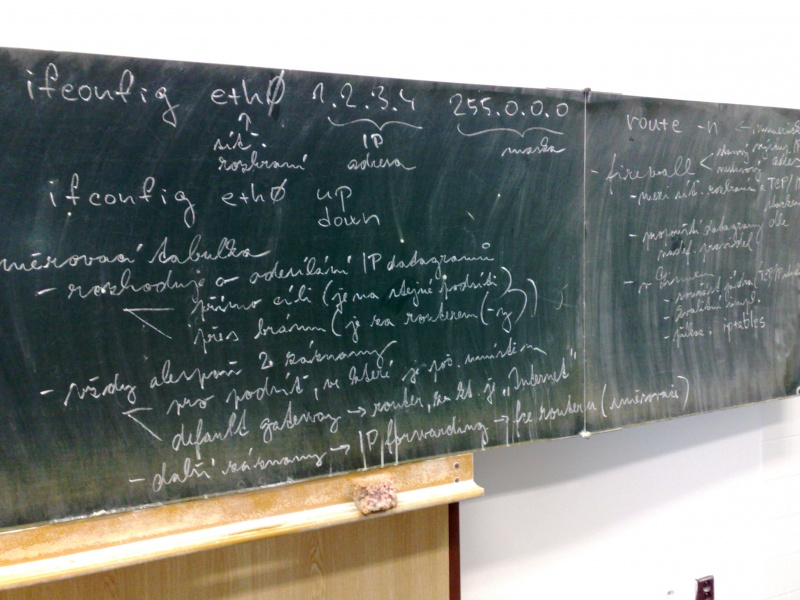 ifconfig eth0 1.2.3.4 255.0.0.0
síť. rozhraní
IP adresa
maska
ifconfig eth0 up
down
směrovací tabulka
- rozhoduje o odesílání IP datagramů
přímo cíli (je na stejné podsíti)
přes bránu (je za routerem (-y))
- vždy alespoň 2 záznamy
pro podsíť, ve které je poč. umístěn
default gateway → router, za kt. je "Internet"
- další záznamy → IP forwarding → fce routeru (směrovací)
route -n
- firewall
- mezi síť. rozhraní a TCP/
- propouští datagramy dle
nadef. pravidel
- v
- součást jádra
- iptables